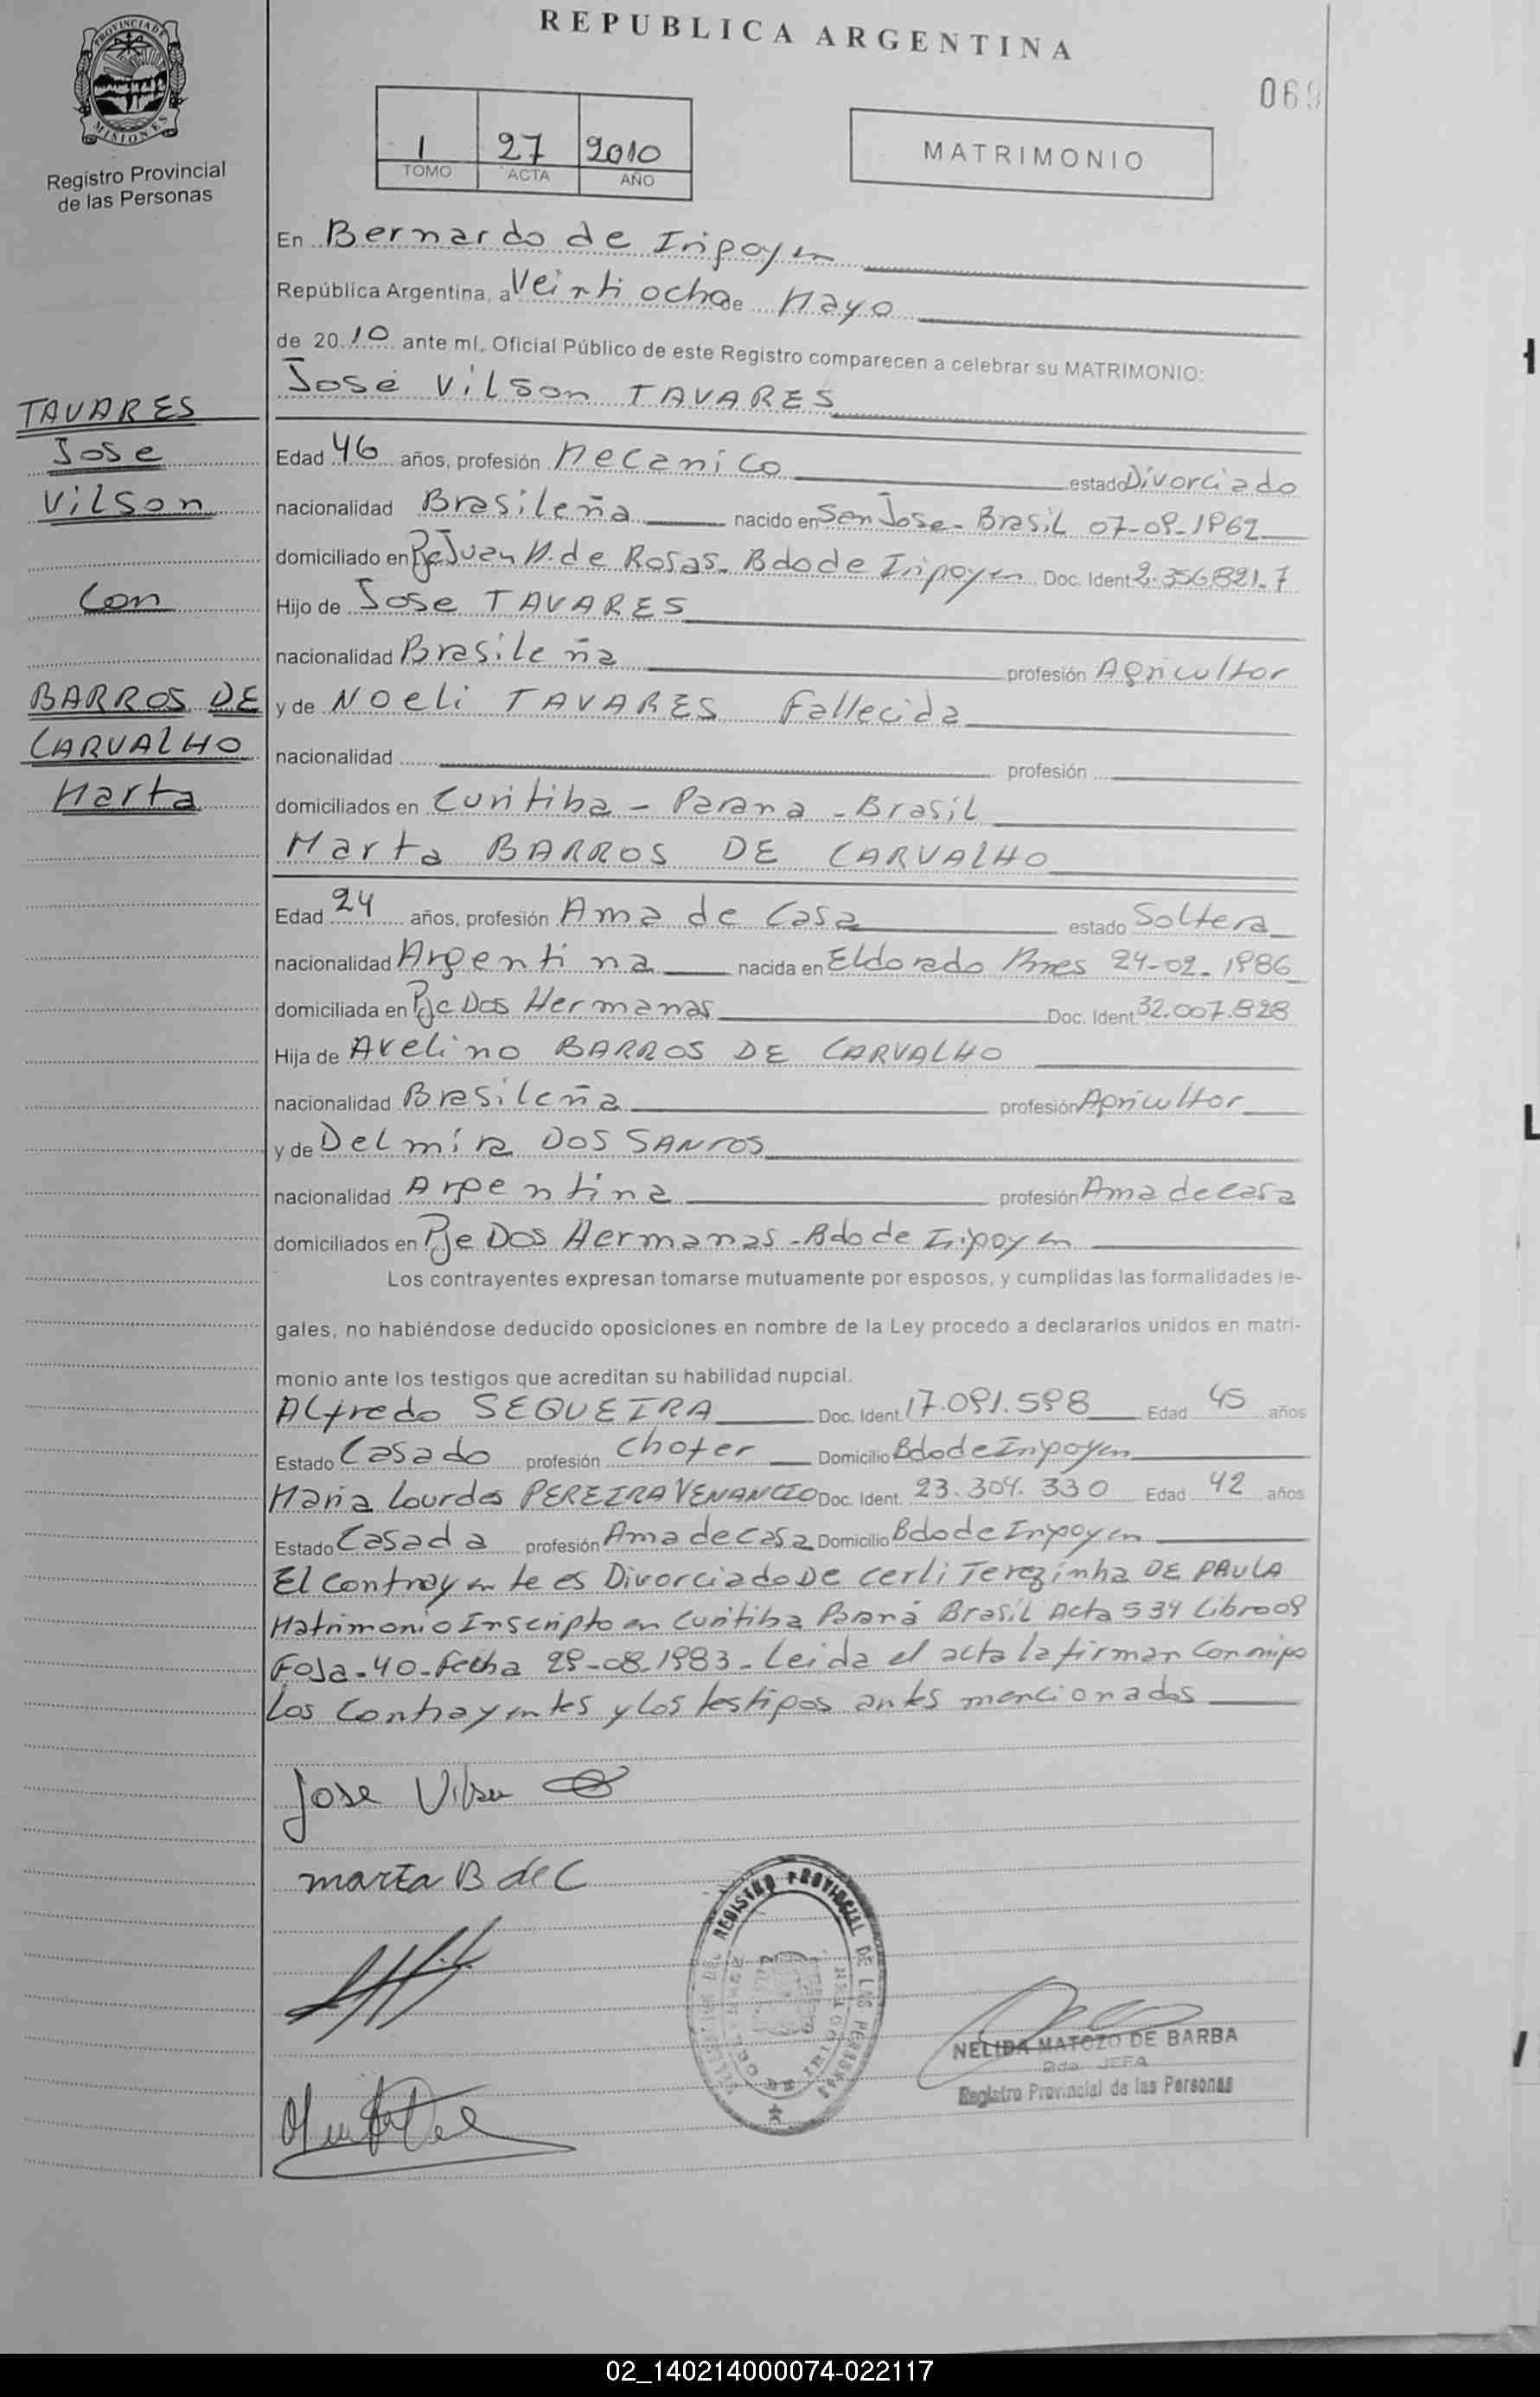 REPUBLICA ARGENTINA
PROVINCIA DE MISIONES
Registro Provincial
de las Personas
069
1 27 2010
TOMO ACTA AÑO
MATRIMONIO
En Bernardo de Irigoyen
República Argentina, a Veinti ocho de Mayo
de 2010 ante mí, Oficial Público de este Registro comparecen a celebrar su MATRIMONIO:
José Vilson TAVARES
TAVARES
Jose
Vilson
Con
BARROS DE
CARVALHO
Marta
Edad 46 años, profesión Mecanico estado Divorciado
nacionalidad Brasileña nacido en San Jose - Brasil 07-09-1962
domiciliado en Pje Juan M. de Rosas - Bdo de Irigoyen Doc. Ident 2.356.821-7
Hijo de Jose TAVARES
nacionalidad Brasileña profesión Agricultor
y de Noeli TAVARES Fallecida
nacionalidad profesión
domiciliados en Curitiba - Parana - Brasil
Marta BARROS DE CARVALHO
Edad 24 años, profesión Ama de Casa estado Soltera
nacionalidad Argentina nacida en Eldorado Mnes 24-02-1986
domiciliada en Pje Dos Hermanas Doc. Ident 32.007.828
Hija de Avelino BARROS DE CARVALHO
nacionalidad Brasileña profesión Agricultor
y de Delmira DOS SANTOS
nacionalidad Argentina profesión Ama de casa
domiciliados en Pje Dos Hermanas - Bdo de Irigoyen
Los contrayentes expresan tomarse mutuamente por esposos, y cumplidas las formalidades le-
gales, no habiéndose deducido oposiciones en nombre de la Ley procedo a declararlos unidos en matri-
monio ante los testigos que acreditan su habilidad nupcial.
Alfredo SEQUEIRA Doc. Ident. 17.091.598 Edad 45 años
Estado Casado profesión Chofer Domicilio Bdo de Irigoyen
Maria Lourdes PEREIRA VENANCIO Doc. Ident. 23.304.330 Edad 42 años
Estado Casada profesión Ama de Casa Domicilio Bdo de Irigoyen
El contrayente es Divorciado De Cerli Terezinha DE PAULA
Matrimonio Inscripto en Curitiba Paraná Brasil Acta 534 Libro 09
Foja - 40 - Fecha 29-08-1983 - Leida el acta la firman conmigo
Los Contrayentes y los testigos antes mencionados
Jose Vilson
marta B de C
REGISTRO PROVINCIAL DE LAS PERSONAS
NELIDA MATOZO DE BARBA
2da. JEFA
Registro Provincial de las Personas
02_140214000074-022117